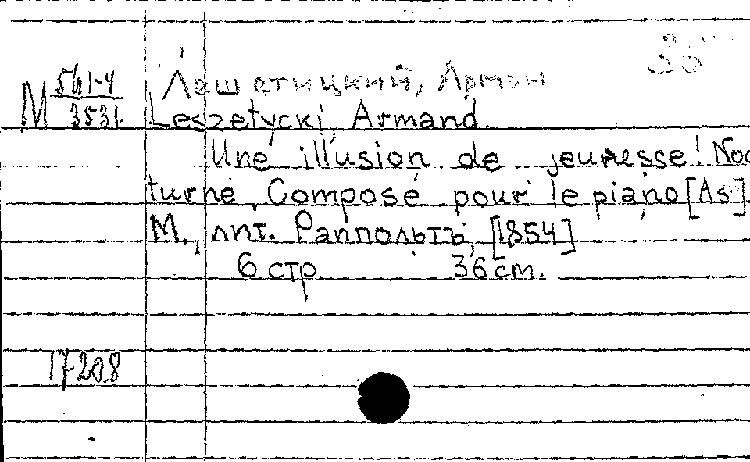 М 561-4 Лешетицкий, Арман
3531 Leszetycki Armand
Une illusion de jeunesse! Noc
turne. Composé pour le piano [As].
М., лит. Раппольтъ, [1854]
6 стр. 36 cm.
17208